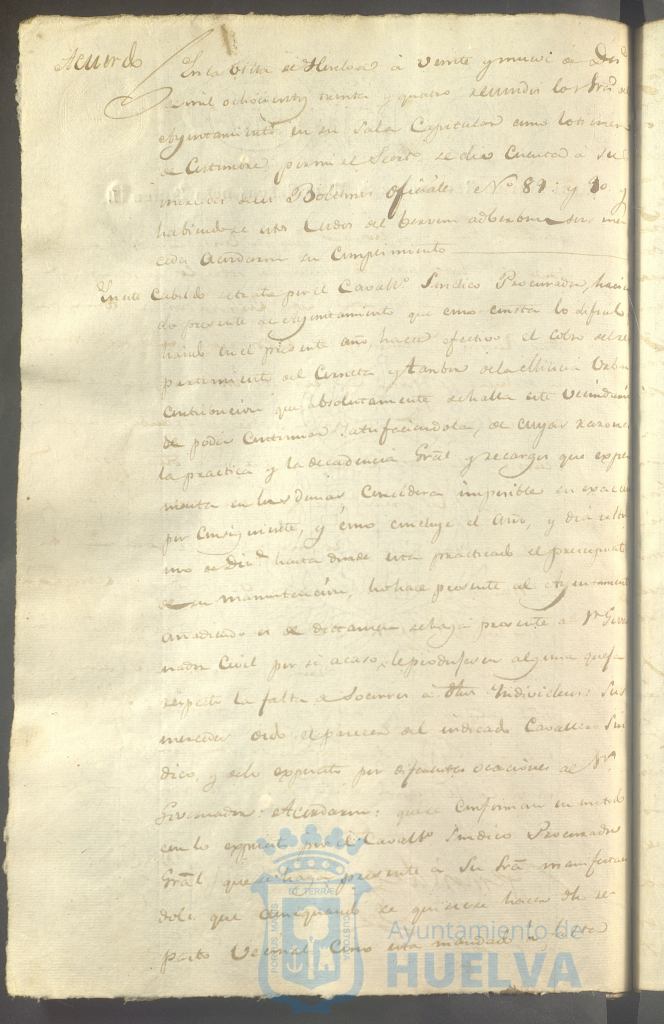 Acuerdo
En la Villa de Huelva à Veinte y nueve de Dic
de mil ochocientos treinta y quatro reunidos los Srs. del
Ayuntamiento en su Sala Capitular como lo tienen
de Costumbre por mi el Secrto. se dio cuenta à sus
mercedes de los Boletines oficiales Nº 89: y 90 y
habiendose estos Leidos del acordaron su
Cumplimiento
En este Cabildo se trata por el Cavallo. Sindico Procurador, hacien
do presente al Ayuntamiento que como consta lo dificul
en el presente año, hacer efectivo el cobro del re
partimiento del Corneta y Tambor de la Milicia Urbana
contribucion que absolutamente se halla este Vecindario
de poder Continuar satisfaciendola, de cuyas razones
la practica y la decadencia Gral y recargos que exper
menta en las demas Concidera imposible su exaccion
por Consiguiente, y como concluye el Año, y dia ulti
mo de Dic. hasta donde esta practicado el presupuesto
de su manutencion, lo hace presente al Ayuntamiento
añadiendo es de dictamen, se haga presente al Sr. Gover
nador Civil por si acaso, le produgesen alguna queja
respecto la falta de Socorros à dhos Individuos: Sus
mercedes oido el parecer del indicado Cavallero Sin
dico, y de lo expuesto por diferentes ocaciones al Sr.
Governador: Acordaron: que se conforman en un todo
con lo expuesto por el Cavallo. Sindico Procurador
Gral que se haga presente à Su Sria. manifestan
dole que aun quando se quisiese hacer dho re
parto Vecinal como esta mandado
PORTUS MARIS
ET TERRAE
CUSTODIA
Ayuntamiento de
HUELVA